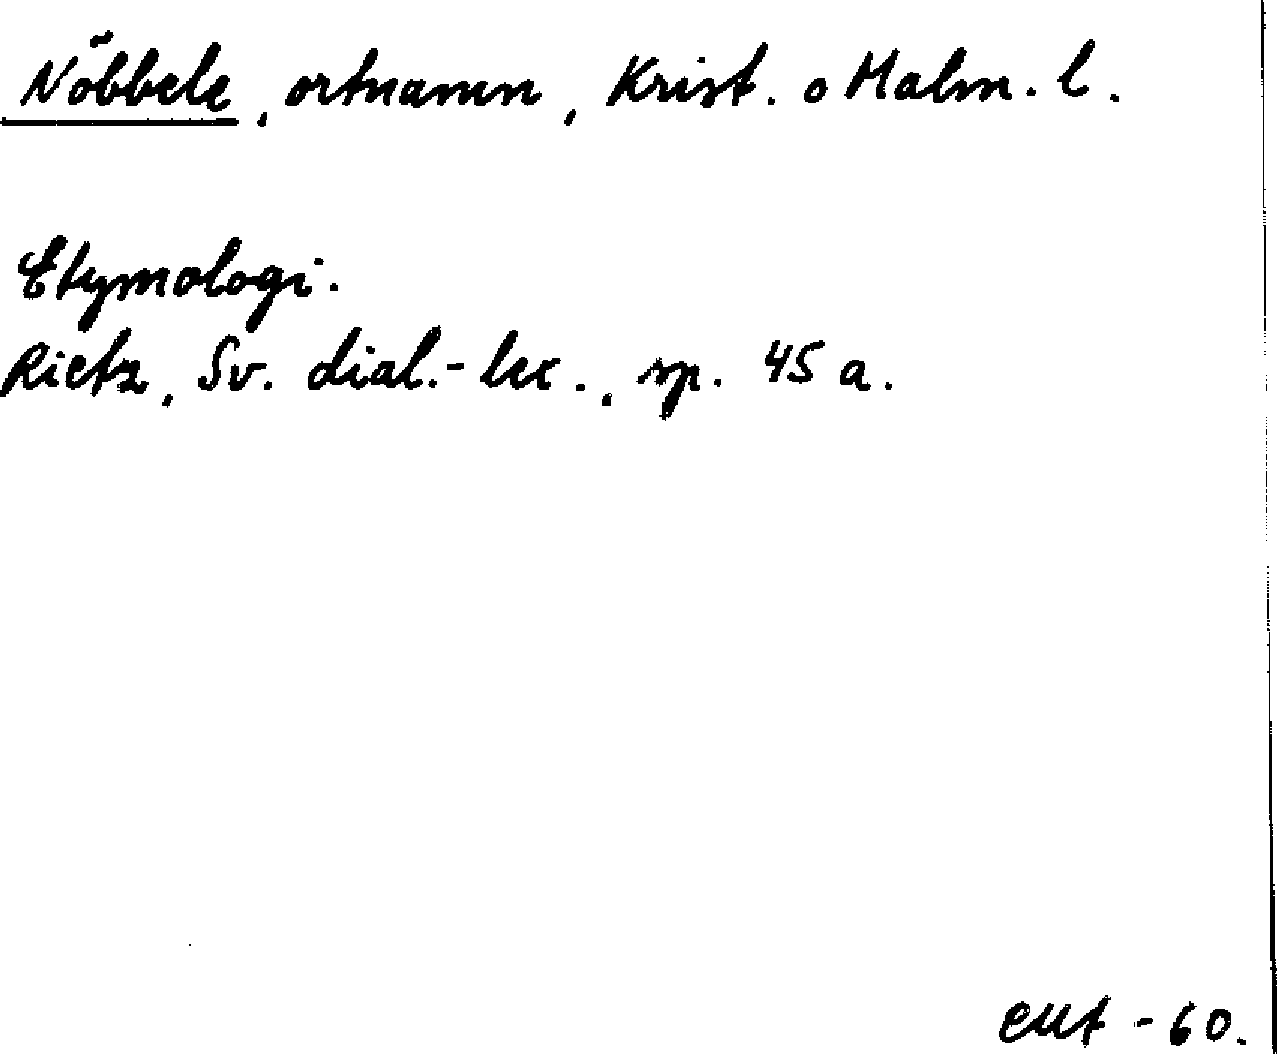 Nöbbele, ortnamn, Krist. o Malm. l.
Etymologi.
Rietz, Sv. dial.-lex., sp. 45 a.
-60.